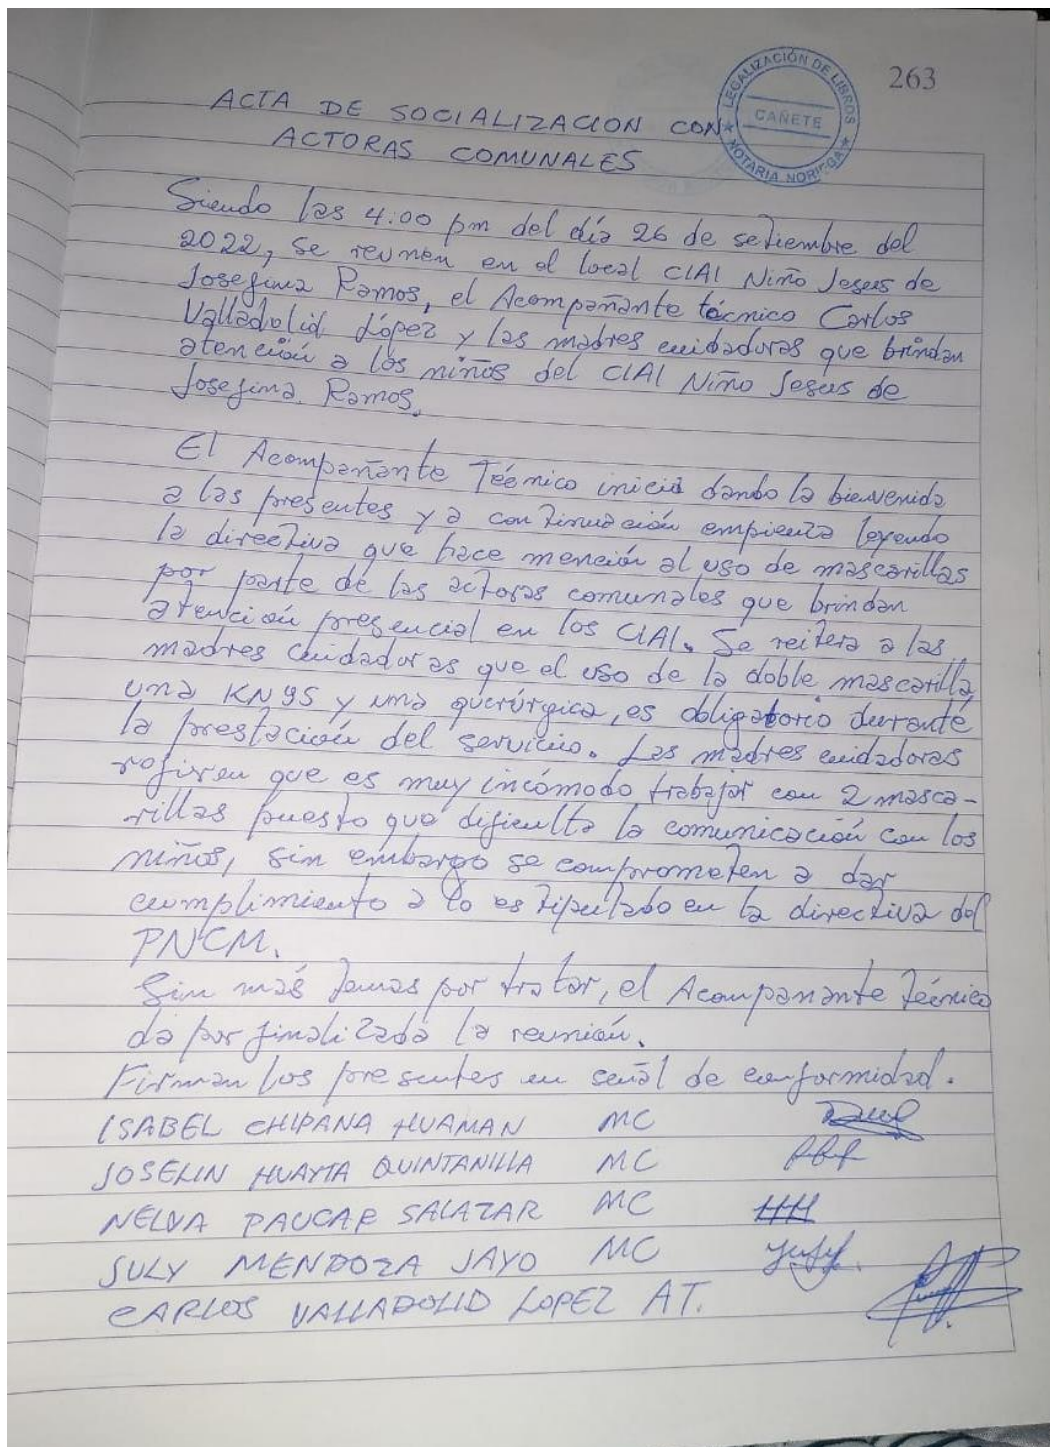 263
LEGALIZACIÓN DE LIBROS
CAÑETE
NOTARIA NORIEGA
ACTA DE SOCIALIZACION CON
ACTORAS COMUNALES
Siendo las 4:00 pm del día 26 de setiembre del
2022, se reunen en el local CIAI Niño Jesus de
Josefina Ramos, el Acompañante técnico Carlos
Valladolid López y las madres cuidadoras que brindan
atención a los niños del CIAI Niño Jesus de
Josefina Ramos.
El Acompañante Técnico inició dando la bienvenida
a las presentes y a continuación empieza leyendo
la directiva que hace mención al uso de mascarillas
por parte de las actoras comunales que brindan
atención presencial en los CIAI. Se reitera a las
madres cuidadoras que el uso de la doble mascarilla,
una KN95 y una quirúrgica, es obligatorio durante
la prestación del servicio. Las madres cuidadoras
refieren que es muy incómodo trabajar con 2 masca-
rillas puesto que dificulta la comunicación con los
niños, sin embargo se comprometen a dar
cumplimiento a lo estipulado en la directiva del
PNCM.
Sin más temas por tratar, el Acompanante Técnico
da por finalizada la reunión.
Firman los presentes en señal de conformidad.
ISABEL CHIPANA HUAMAN MC
JOSELIN HUAYTA QUINTANILLA MC
NELVA PAUCAR SALAZAR MC
SULY MENDOZA JAYO MC
CARLOS VALLADOLID LOPEZ AT.